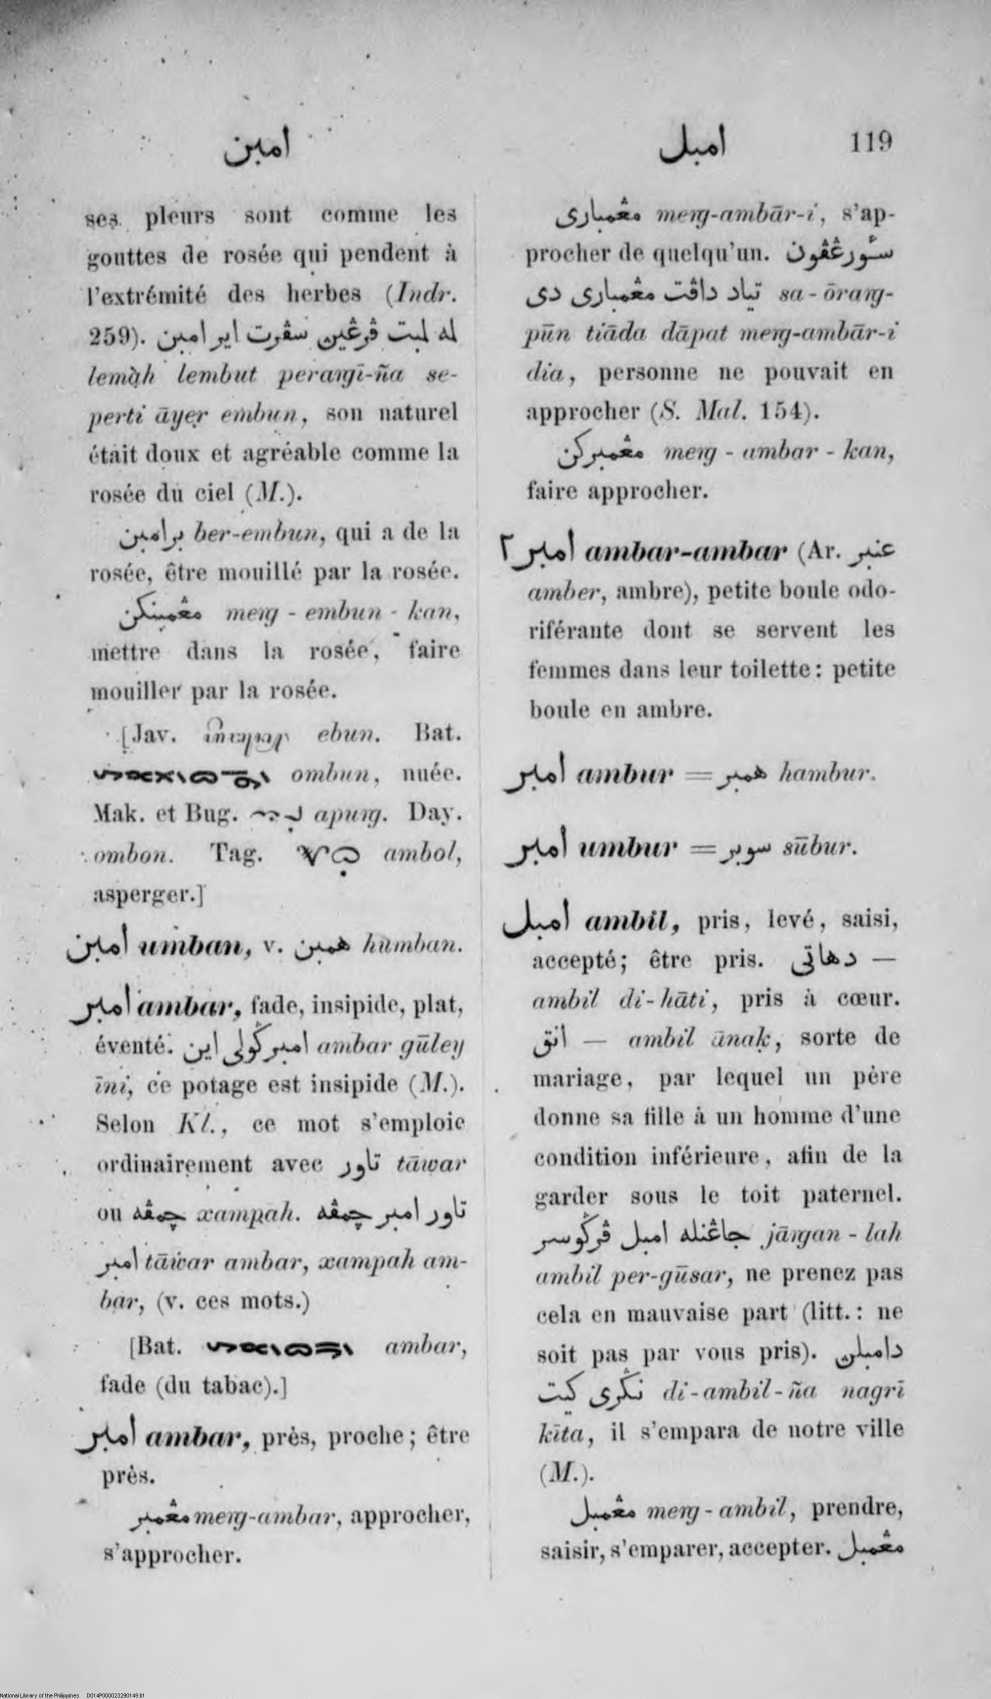 امبن
امبل
119
ses pleurs sont comme les
gouttes de rosée qui pendent à
l'extrémité des herbes (Indr.
259). له لمبت ڤرڠين سڤرت اير امبن
lemàh lembut perangī-ña se-
perti āyer embun, son naturel
était doux et agréable comme la
rosée du ciel (M.).
برامبن ber-embun, qui a de la
rosée, être mouillé par la rosée.
مڠمبنكن meng - embun - kan,
mettre dans la rosée, faire
mouiller par la rosée.
[Jav. ebun. Bat.
ombun, nuée.
Mak. et Bug. apung. Day.
ombon. Tag. ambol,
asperger.]
امبن umban, v. همبن humban.
امبر ambar, fade, insipide, plat,
éventé. امبر ݢولي اين ambar gūley
īni, ce potage est insipide (M.).
Selon Kl., ce mot s'emploie
ordinairement avec تاور tāwar
ou چمڤه xampah. تاور امبر چمڤه
امبر tāwar ambar, xampah am-
bar, (v. ces mots.)
[Bat. ambar,
fade (du tabac).]
امبر ambar, près, proche; être
près.
مڠمبر meng-ambar, approcher,
s'approcher.
مڠمباري meng-ambār-i, s'ap-
procher de quelqu'un. سٔورڠڤون
تياد داڤت مڠمباري دي sa-ōrang-
pūn tiāda dāpat meng-ambār-i
dia, personne ne pouvait en
approcher (S. Mal. 154).
مڠمبركن meng - ambar - kan,
faire approcher.
امبر ٢ ambar-ambar (Ar. عنبر
amber, ambre), petite boule odo-
riférante dont se servent les
femmes dans leur toilette: petite
boule en ambre.
امبر ambur = همبر hambur.
امبر umbur = سوبر sūbur.
امبل ambil, pris, levé, saisi,
accepté; être pris. دهاتي —
ambil di-hāti, pris à cœur.
انق — ambil ānak, sorte de
mariage, par lequel un père
donne sa fille à un homme d'une
condition inférieure, afin de la
garder sous le toit paternel.
جاڠنله امبل ڤرݢوسر jāngan - lah
ambil per-gūsar, ne prenez pas
cela en mauvaise part (litt.: ne
soit pas par vous pris). دامبلن
نݢري كيت di-ambil-ña nagrī
kīta, il s'empara de notre ville
(M.).
مڠمبل meng - ambil, prendre,
saisir, s'emparer, accepter. مڠمبل
National Library of the Philippines